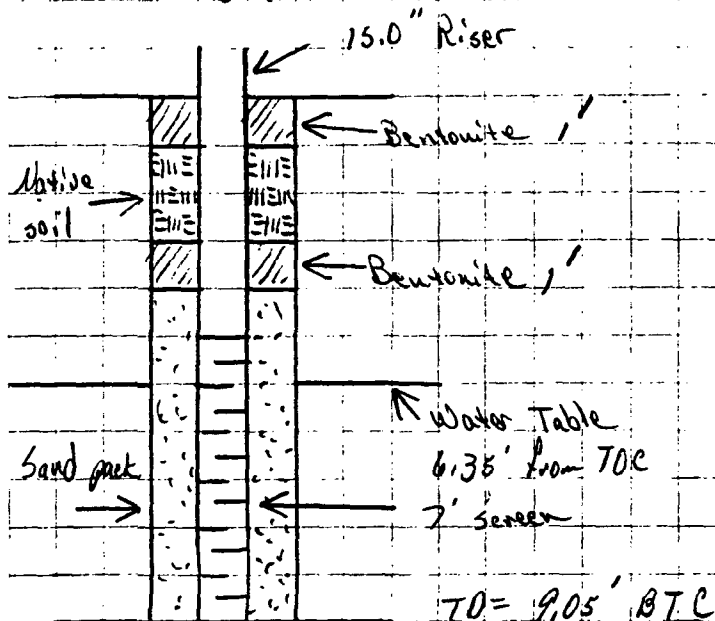 15.0" Riser
Bentonite 1'
Native
soil
Bentonite 1'
Water Table
6.35' from TOC
Sand pack
7' screen
TD= 9.05' BTC